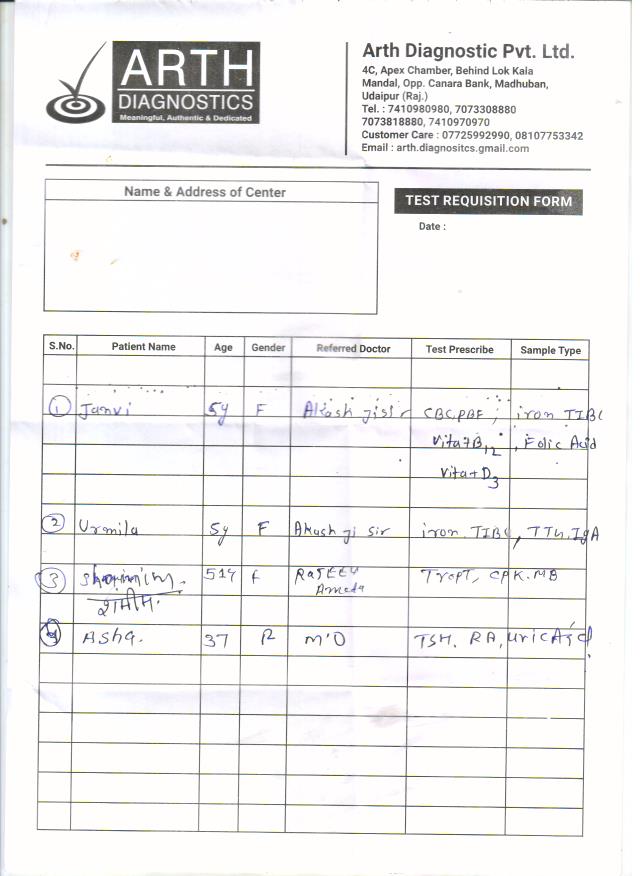 ARTH
DIAGNOSTICS
Meaningful, Authentic & Dedicated
Arth Diagnostic Pvt. Ltd.
4C, Apex Chamber, Behind Lok Kala
Mandal, Opp. Canara Bank, Madhuban,
Udaipur (Raj.)
Tel. : 7410980980, 7073308880
7073818880, 7410970970
Customer Care : 07725992990, 08107753342
Email : arth.diagnositcs.gmail.com
Name & Address of Center
TEST REQUISITION FORM
Date :
S.No. Patient Name Age Gender Referred Doctor Test Prescribe Sample Type
1 Janvi 5y F Akash ji sir CBC, PBF, iron TIBC
Vita B12, Folic Acid
Vita D3
2 Urmila 5y F Akash ji sir iron TIBC, TTG IgA
3 51y F TropT, CPK.MB
शामिम
4 Asha. 37 F M'O TSH, RA, uric Acid